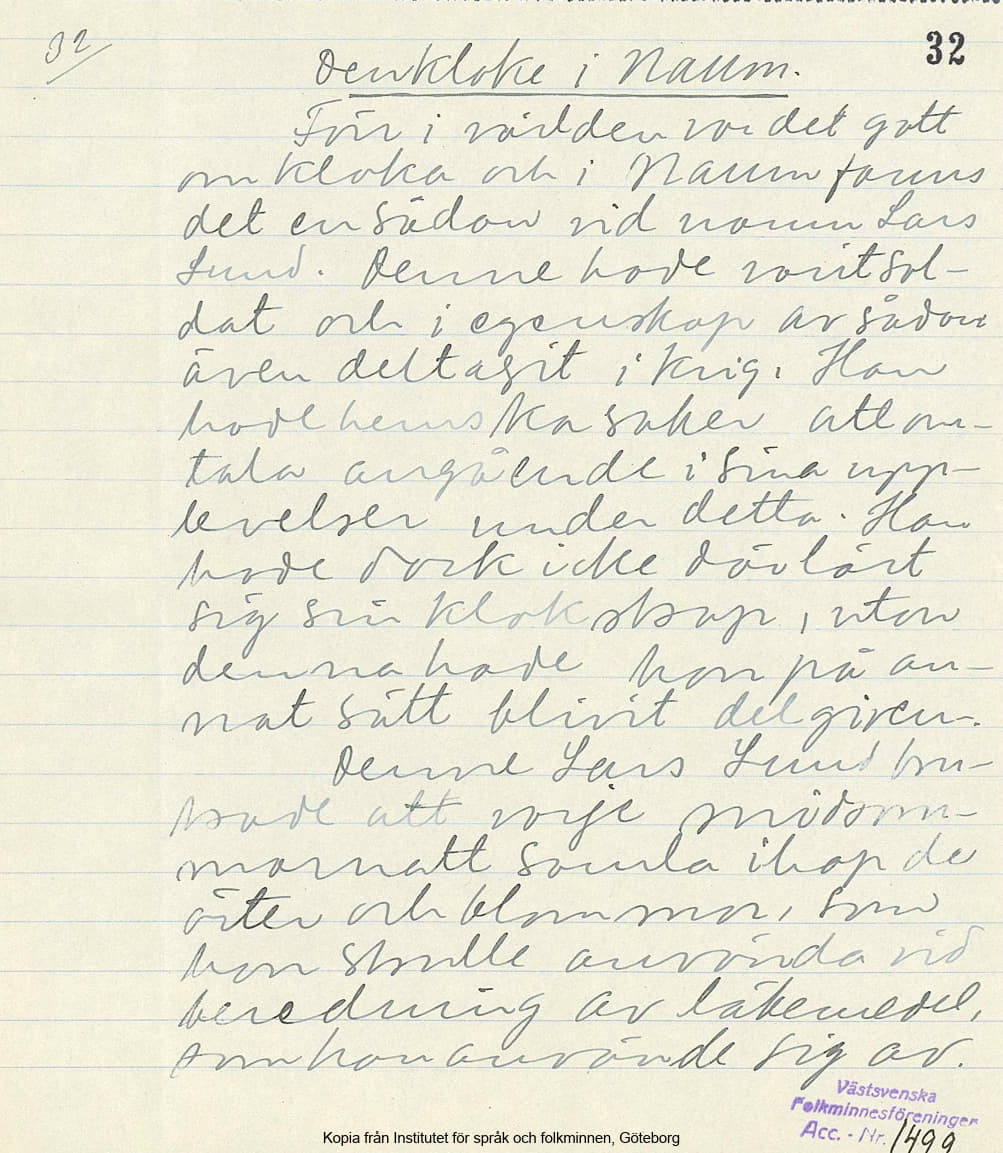 32
32
Den kloke i Naum.
Förr i världen var det gott
om kloka och i Naum fanns
det en sådan vid namn Lars
Lund. Denne hade varit sol-
dat och i egenskap av sådan
även deltagit i krig. Han
hade hemska saker att om-
tala angående i sina upp-
levelser under detta. Han
hade dock icke där lärt
sig sin klokskap, utan
denna hade han på an-
nat sätt blivit delgiven.
Denne Lars Lund bru-
kade att varje midsom-
marnatt samla ihop de
örter och blommor, som
han skulle använda vid
beredning av läkemedel,
som han använde sig av.
Västsvenska
Folkminnesföreningen
Acc. - Nr. 1499
Kopia från Institutet för språk och folkminnen, Göteborg